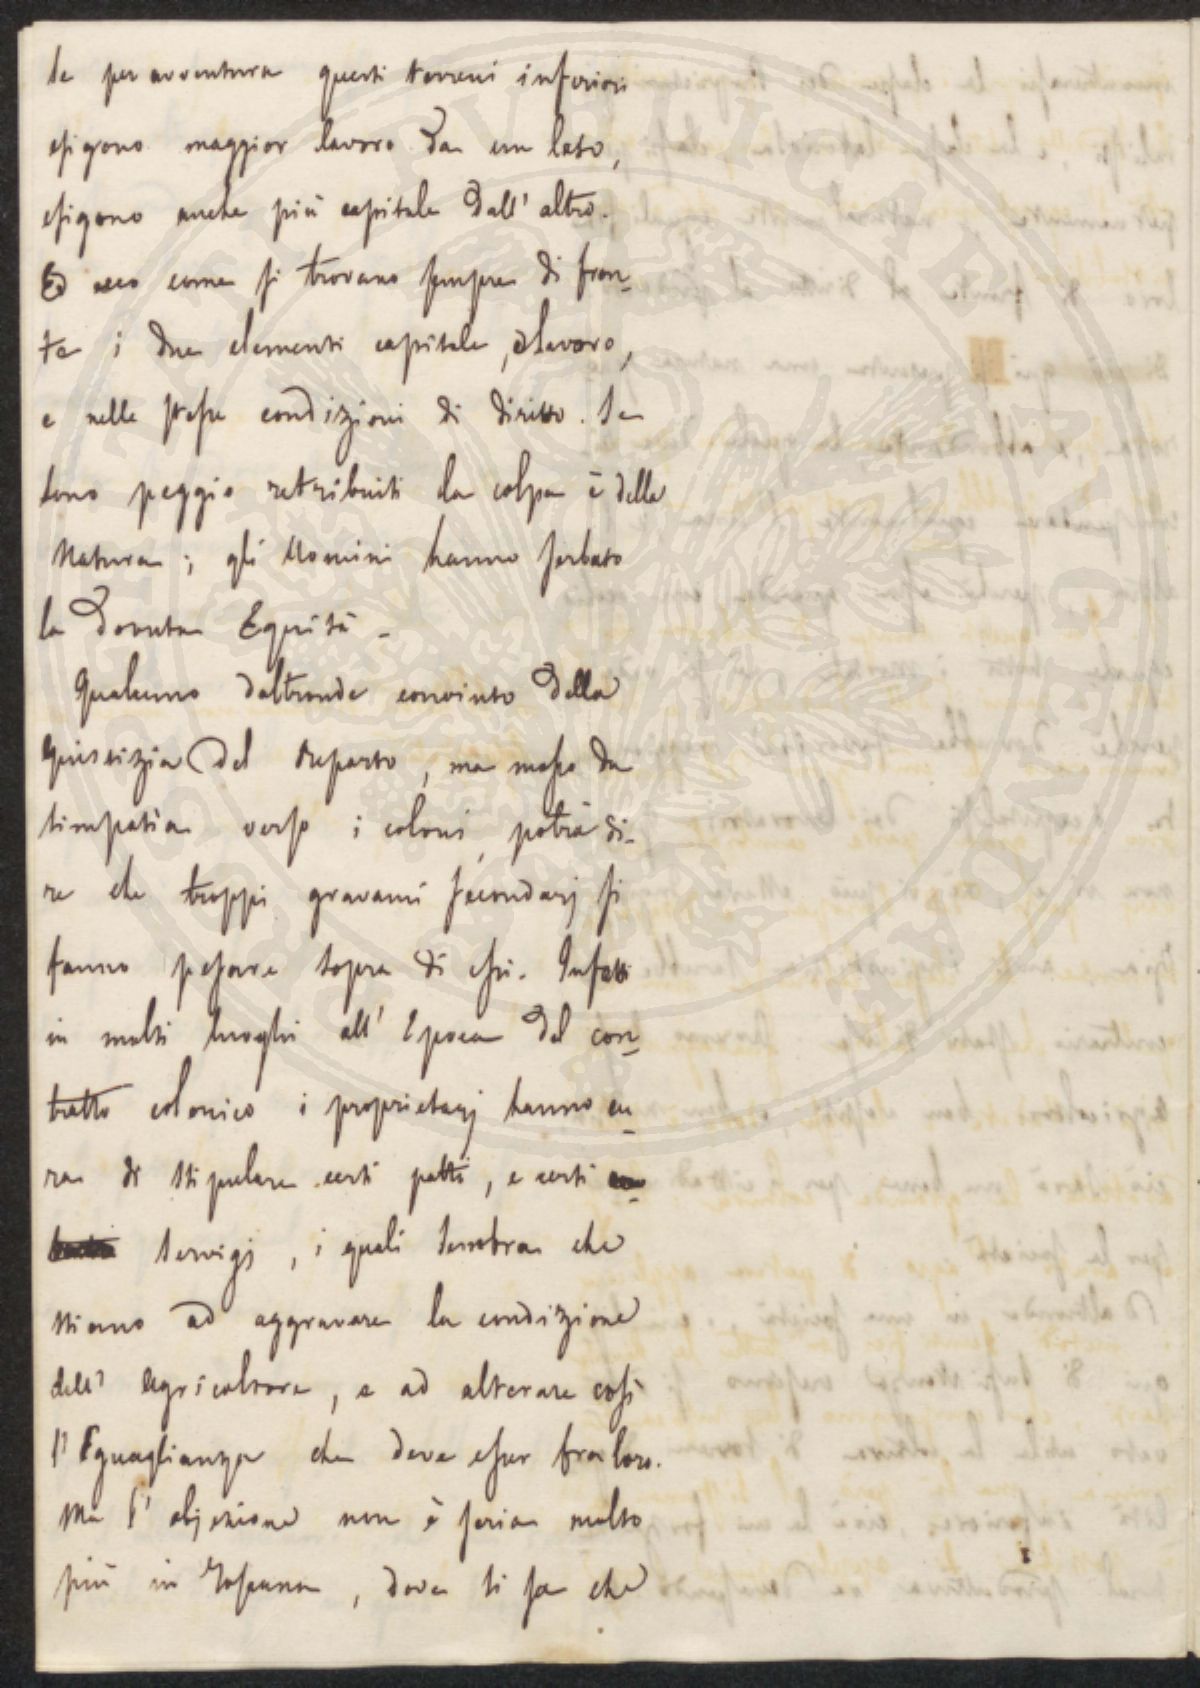 Se per avventura questi terreni inferiori
esigono maggior lavoro da un lato,
esigono anche più capitale dall' altro.
Ed ecco come si trovano sempre di fron-
te i due elementi capitale, e lavoro,
e nelle stesse condizioni di diritto. Se
sono peggio retribuiti la colpa è della
Natura; gli Uomini hanno serbato
la dovuta Equità.
Qualcuno d'altronde convinto della
giustizia del reparto, ma mosso da
simpatia verso i coloni, potrà di-
re che troppi gravami secondarj si
fanno pesare sopra di essi. Infatti
in molti luoghi all' Epoca del con-
tratto colonico i proprietarj hanno cu-
ra di stipulare certi patti, e certi
servigj, i quali sembra che
stiano ad aggravare la condizione
dell' Agricoltore, e ad alterare così
l' Eguaglianza che deve esser fra loro.
Ma l' objezione non è seria molto
più in Toscana, dove si sa che